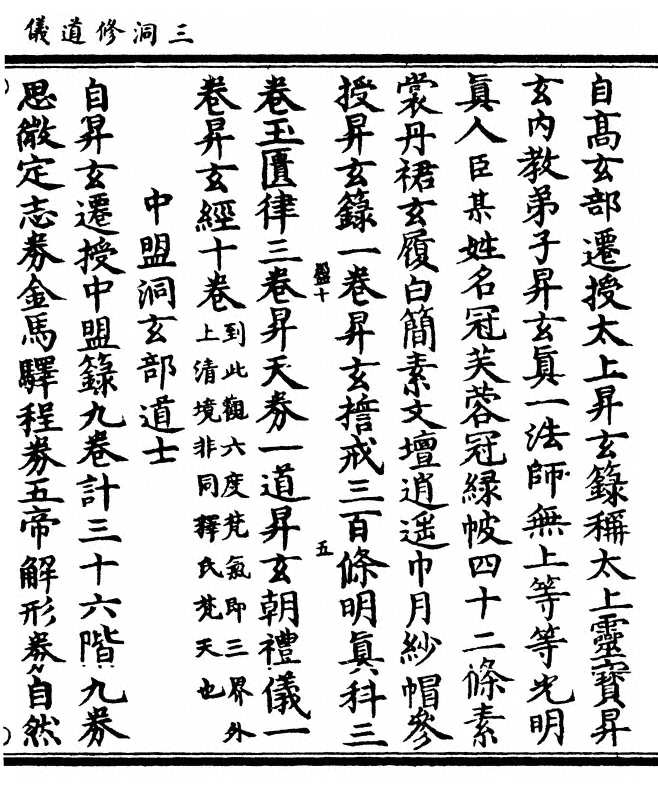 三洞修道儀
自高玄部遷授太上昇玄籙稱太上靈寶昇
玄内教弟子昇玄真一法師無上等等光明
真人臣某姓名冠芙蓉冠緑帔四十二條素
裳丹裙玄履白簡素文壇逍遥巾月紗帽參
授昇玄籙一卷昇玄誓戒三百條明真科三
卷玉匱律三卷昇天券一道昇玄朝禮儀一
卷昇玄經十卷到此觀六度梵氣即三界外
上清境非同釋氏梵天也
中盟洞玄部道士
自昇玄遷授中盟籙九卷計三十六階九券
思微定志券金馬驛程券五帝解形券自然
盟十
五